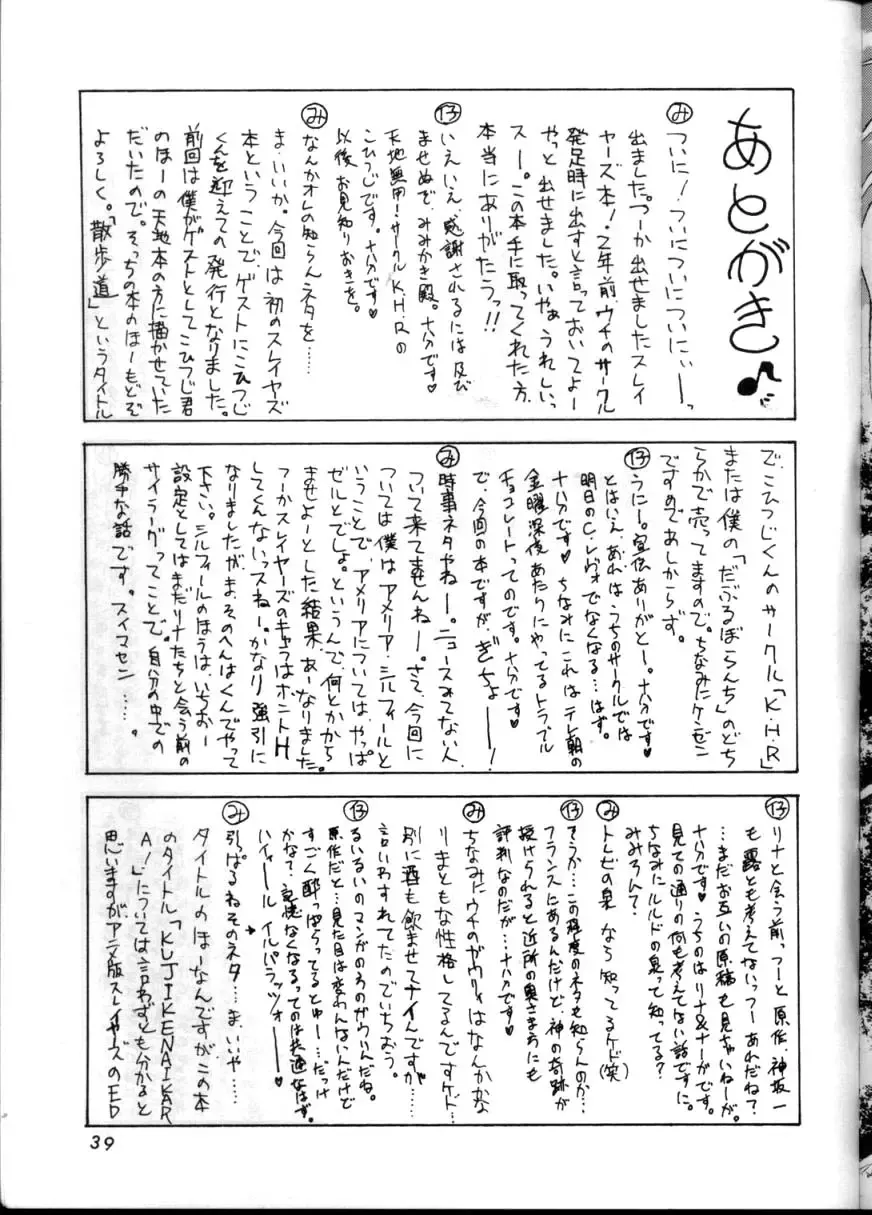 あとがき♪
み ついに!ついについについにぃーっ
出ました。つーか出せましたスレイ
ヤーズ本!2年前、ウチのサークル
発足時に出すと言っておいてよー
やっと出せました。いやぁ、うれしいっ
スー。この本手に取ってくれた方、
本当にありがたうっ!!
13 いえいえ、感謝されるには及び
ませぬで、みみかき殿。十八分です♥
天地無用!サークルK.H.Rの
こひつじです。十八分です♥
以後、お見知りおきを。
み なんかオレの知らんネタを……
ま、いいか。今回は初のスレイヤーズ
本ということで、ゲストにこひつじ
くんを迎えての発行となりました。
前回は僕がゲストとしてこひつじ君
のほーの天地本の方に描かせていた
だいたので。そっちの本のほーもどーぞ
よろしく。「散歩道」というタイトル
で、こひつじくんのサークル「K・H・R」
または僕の「だぶるぼらんち」のどち
らかで売ってますので。ちなみにケンゼン
ですのであしからず。
13 うにー。宣伝ありがとー。十八分です♥
とはいえ、あれはうちのサークルでは
明日のC.レヴォでなくなる…はず。
十八分です♥ ちなみにこれはテレ朝の
金曜深夜あたりにやってるトラブル
チョコレートってのです。十八分です♥
で、今回の本ですが、ぎちょーーー!
み 時事ネタやねー。ニュースみてない人、
ついて来てませんねー。さて、今回に
ついては僕はアメリア・シルフィールと
いうことで、アメリアについては、やっぱ
ゼルとでしょ。というんで、何とかから
ませよーとした結果、あーなりました。
つーかスレイヤーズのキャラはホントH
してくんないっスねー。かなり強引に
なりましたが、ま、そのへんはくんでやって
下さい。シルフィールのほうは、いちおー
設定としてはまだリナたちと会う前の
サイラーグってことで。自分の中での
勝手な話です。スイマセン……。
13 リナと会う前っつーと原作、神坂一
も露とも考えてないっつーあれだね?
…まだお互いの原稿も見ちゃいねーが。
十八分です♥ うちのはリナ&ナーガです。
見ての通りの何も考えてない話ですに。
ちなみにルルドの泉って知ってる?
みみろんて?
み トレビの泉なら知ってるケド(笑)
13 そうか…この程度のネタも知らんのか…
フランスにあるんだけど、神の奇跡が
授けられると近所の奥さまにも
評判なのだが…十八分です♥
み ちなみにウチのガウリィはなんかかな
りまともな性格してるんですケド…
別に酒も飲ませてナイんですが……
言いわすれてたのでいちおう。
13 るいるいのマンガのあのガウリィだね。
原作だと…見た目は変わんないんだけど
すごく酔っぱらってるとゆー…だっけ
かな?記憶なくなるってのは共通なはず。
ハイィール イルパラッツォーー
み 引っぱるねそのネタ…ま、いいや……
タイトルのほーなんですが、この本
のタイトル「KUJIKENAIKAR
A!」については言わずとも分かると
思いますがアニメ版スレイヤーズのED
39